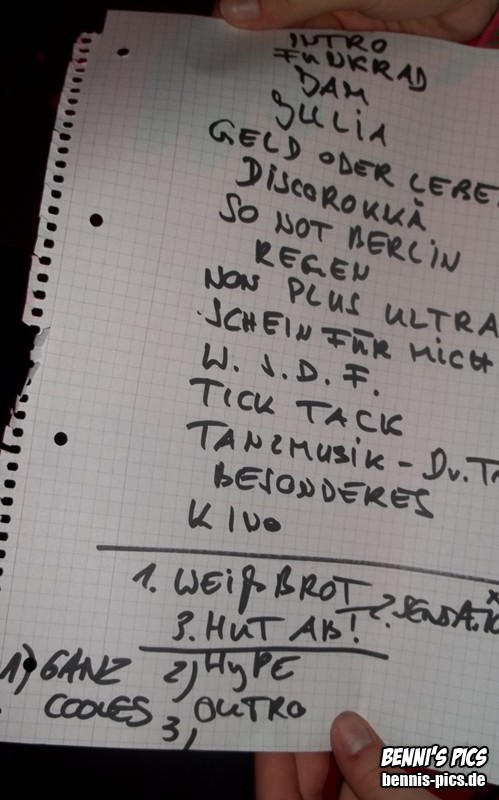 INTRO
FUNKRAD
DAM
JULIA
GELD ODER LEBE
DISCOROKKÄ
SO NOT BERLIN
REGEN
NON PLUS ULTRA
SCHEIN FÜR MICH
W. J. D. F.
TICK TACK
TANZMUSIK - Dr. TA
BESONDERES
KINO
1. WEIßBROT 2. SENSATIO
3. HUT AB!
1) GANZ COOLES 2) HYPE
3) OUTRO
BENNI'S PICS
bennis-pics.de